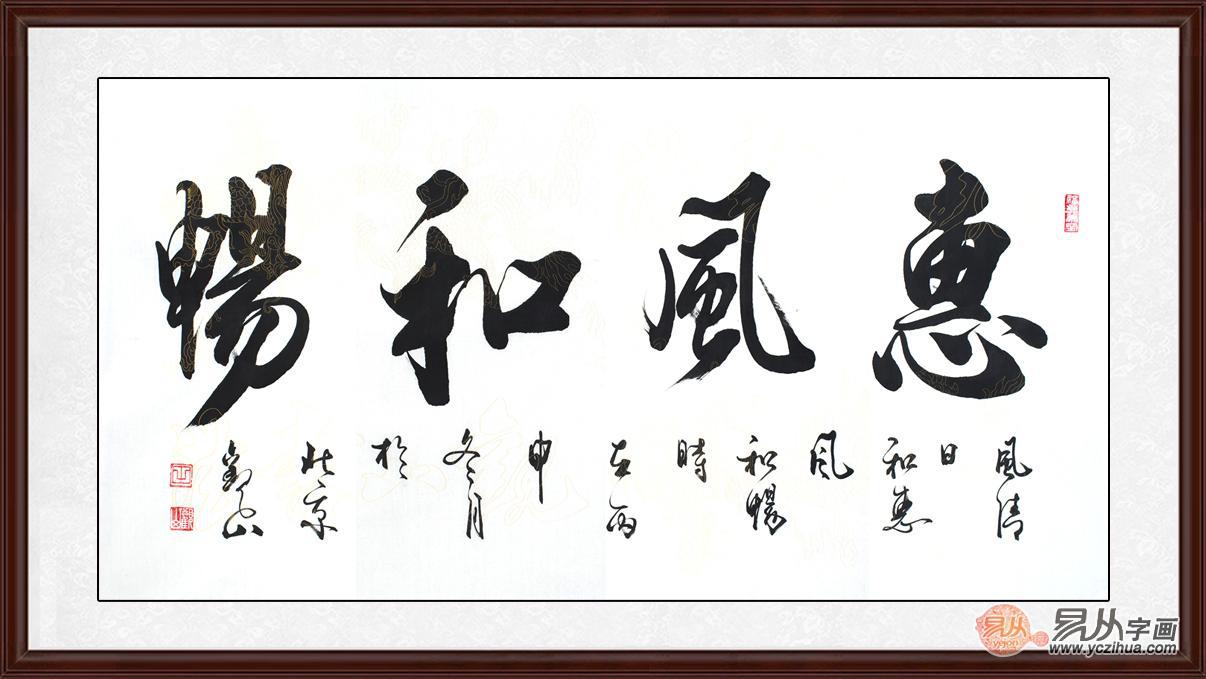 惠風和暢
風清
日
和惠
風
和暢
時
在丙
申
冬月
於
北京
觀山
易从
易从字画
www.yczihua.com